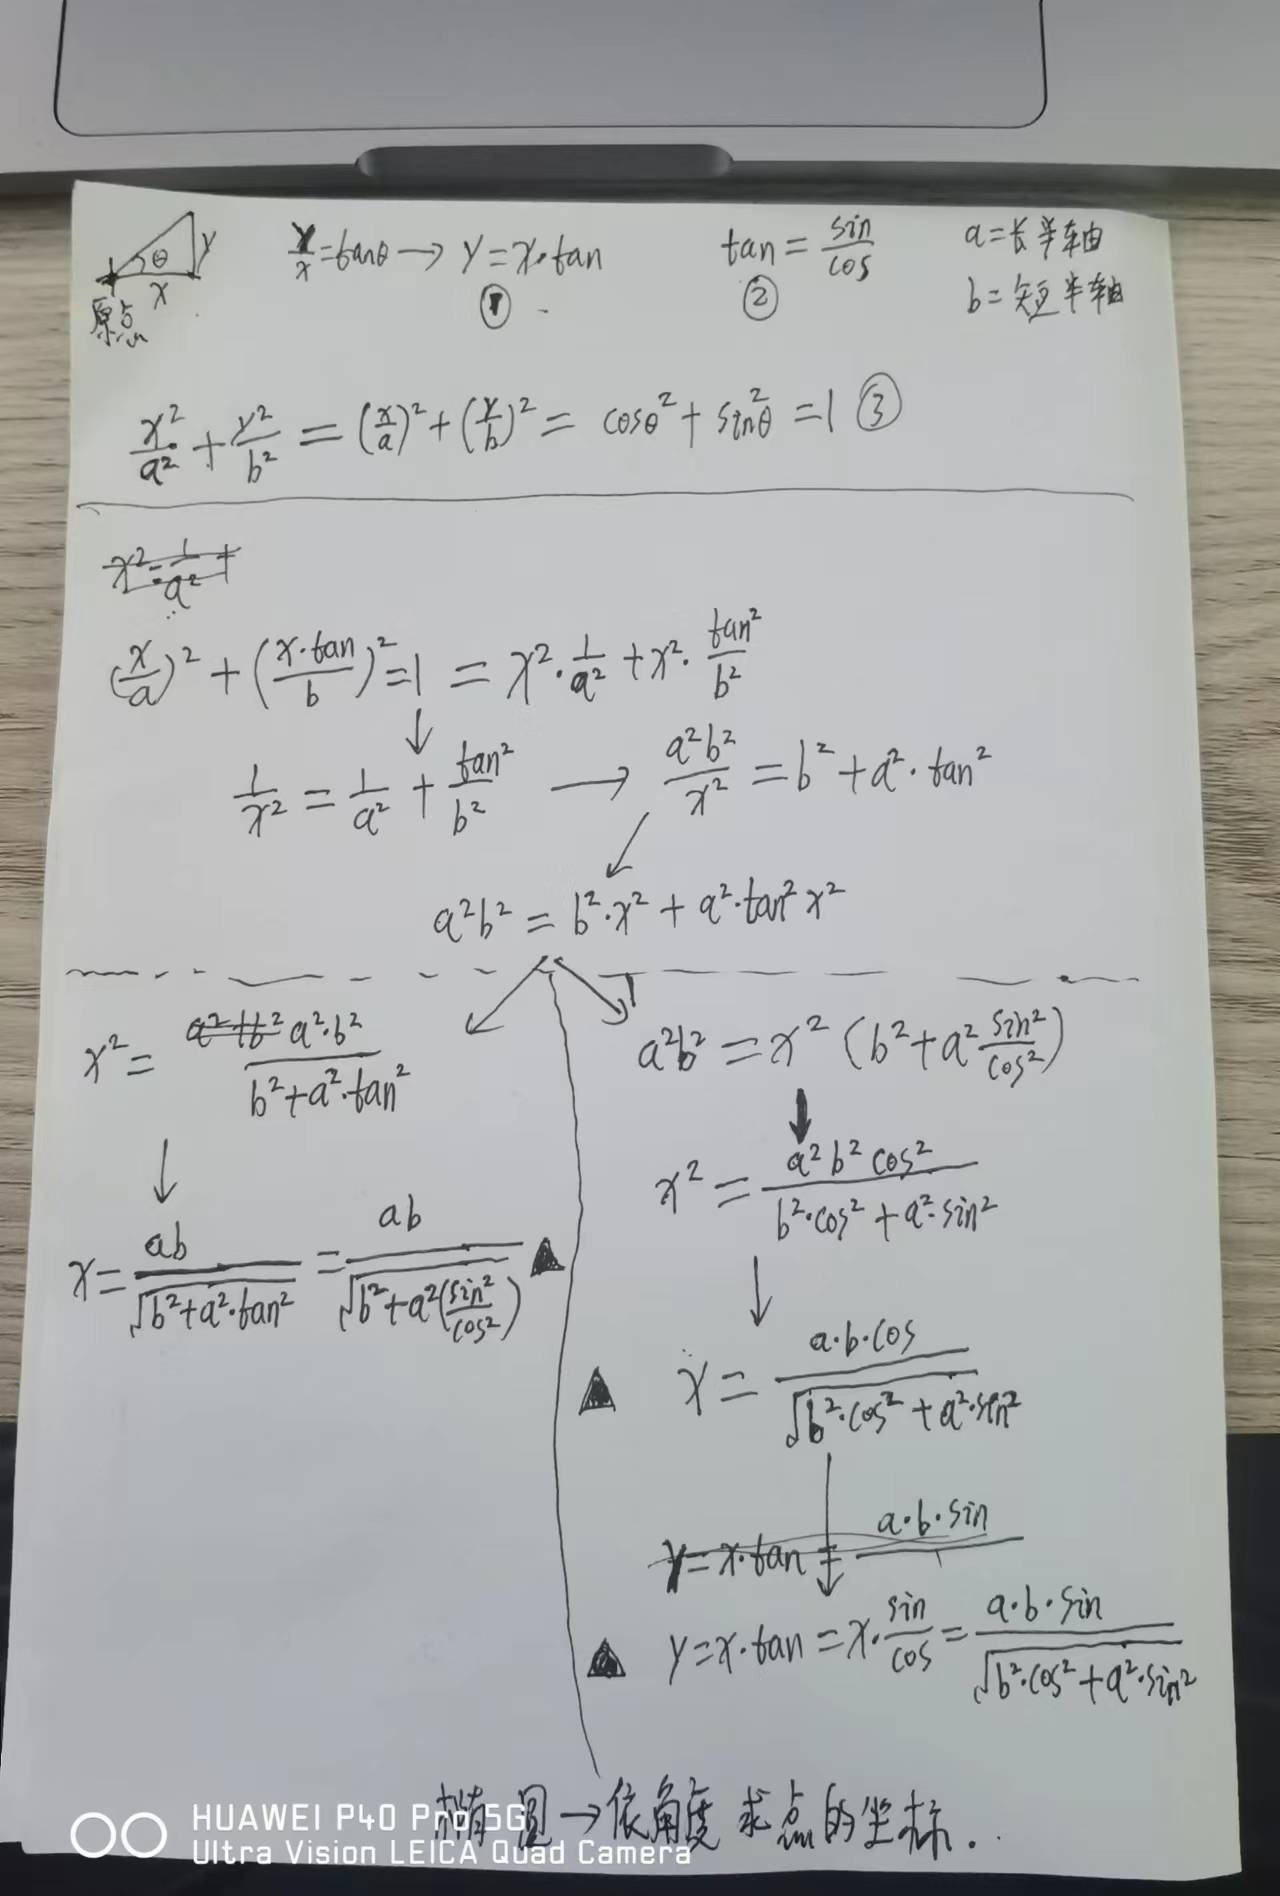 θ y x 原点
y/x=tanθ→ y=x·tan ①
tan=sin/cos ②
a=长半轴
b=短半轴
x²/a²+y²/b²=(x/a)²+(y/b)²=cosθ²+sin²θ=1 ③
x²=1/a²+
(x/a)²+(x·tan/b)²=1=x²·1/a²+x²·tan²/b²
↓
1/x²=1/a²+tan²/b² → a²b²/x²=b²+a²·tan²
a²b²=b²·x²+a²·tan²x²
x²=a²+b² a²·b²/b²+a²·tan²
↓
x=ab/√b²+a²·tan²=ab/√b²+a²(sin²/cos²) ▲
a²b²=x²(b²+a²sin²/cos²)
↓
x²=a²b²cos²/b²·cos²+a²·sin²
↓
▲ x=a·b·cos/√b²·cos²+a²·sin²
↓
y=x·tan=a·b·sin
▲ y=x·tan=x·sin/cos=a·b·sin/√b²·cos²+a²·sin²
椭圆→依角度求点的坐标.
HUAWEI P40 Pro 5G
Ultra Vision LEICA Quad Camera